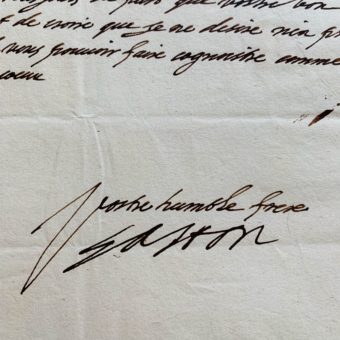 que vostre bon
t de croire que je ne desire rien
vous pouvoir faire cognoitre comme
coeur
Vostre humble frere
Gaston